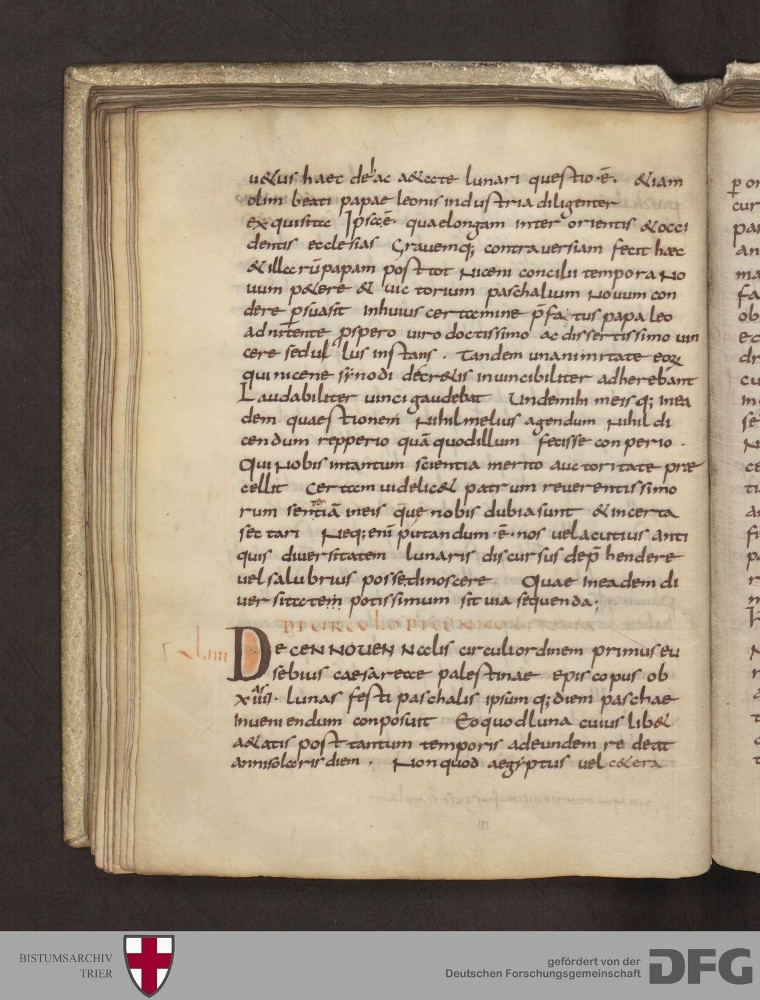 uetus haec de hac aetate lunari questio ·ē· etiam
olim beati papae leonis industria diligenter
exquisita Ipsa ē· quae longam inter orientis et occi
dentis ecclesias Grauemq; contrauersiam fecit haec
et illa rū papam post tot Niceni concilii tempora No
uum petere et uictorium paschalium Nouum con
dere ꝑsuasit inhuius certamine p̄fatus papa leo
adnitente pspero uiro doctissimo ac dissertissimo uin
cere sedul lus instans . Tandem unanimitate eoꝝ
qui nicene synodi decretis inuincibiliter adherebant
Laudabiliter uinci gaudebat Unde mihi meisq; in ea
dem quaestionem Nihil melius agendum Nihil di
cendum repperio quā quod illum fecisse conperio .
Qui Nobis in tantum scientia merito auctoritate præ
cellit Certam uidelicet patrum reuerentissimo
rum sententiā in eis que nobis dubia sunt et incerta
sectari Neq; eni putandum ·ē· nos uel acutius anti
quis diuersitatem lunaris discursus dep̄hendere
uel salubrius posse dinoscere Quae in eadem di
uersitatem potissimum sit uia sequenda;
DE CIRCULO DECEN
xliiii
DECENNOUENNalis circuli ordinem primus eu
sebius caesareae palestinae episcopus ob
xiiii· lunas festi paschalis ipsumq; diem paschae
inueniendum conposuit Eo quod luna cuius libet
aetatis post tantum temporis ad eundem redeat
anni solaris diem . Non quod aegyptus uel cetera
III
BISTUMSARCHIV
TRIER
gefördert von der
Deutschen Forschungsgemeinschaft
DFG